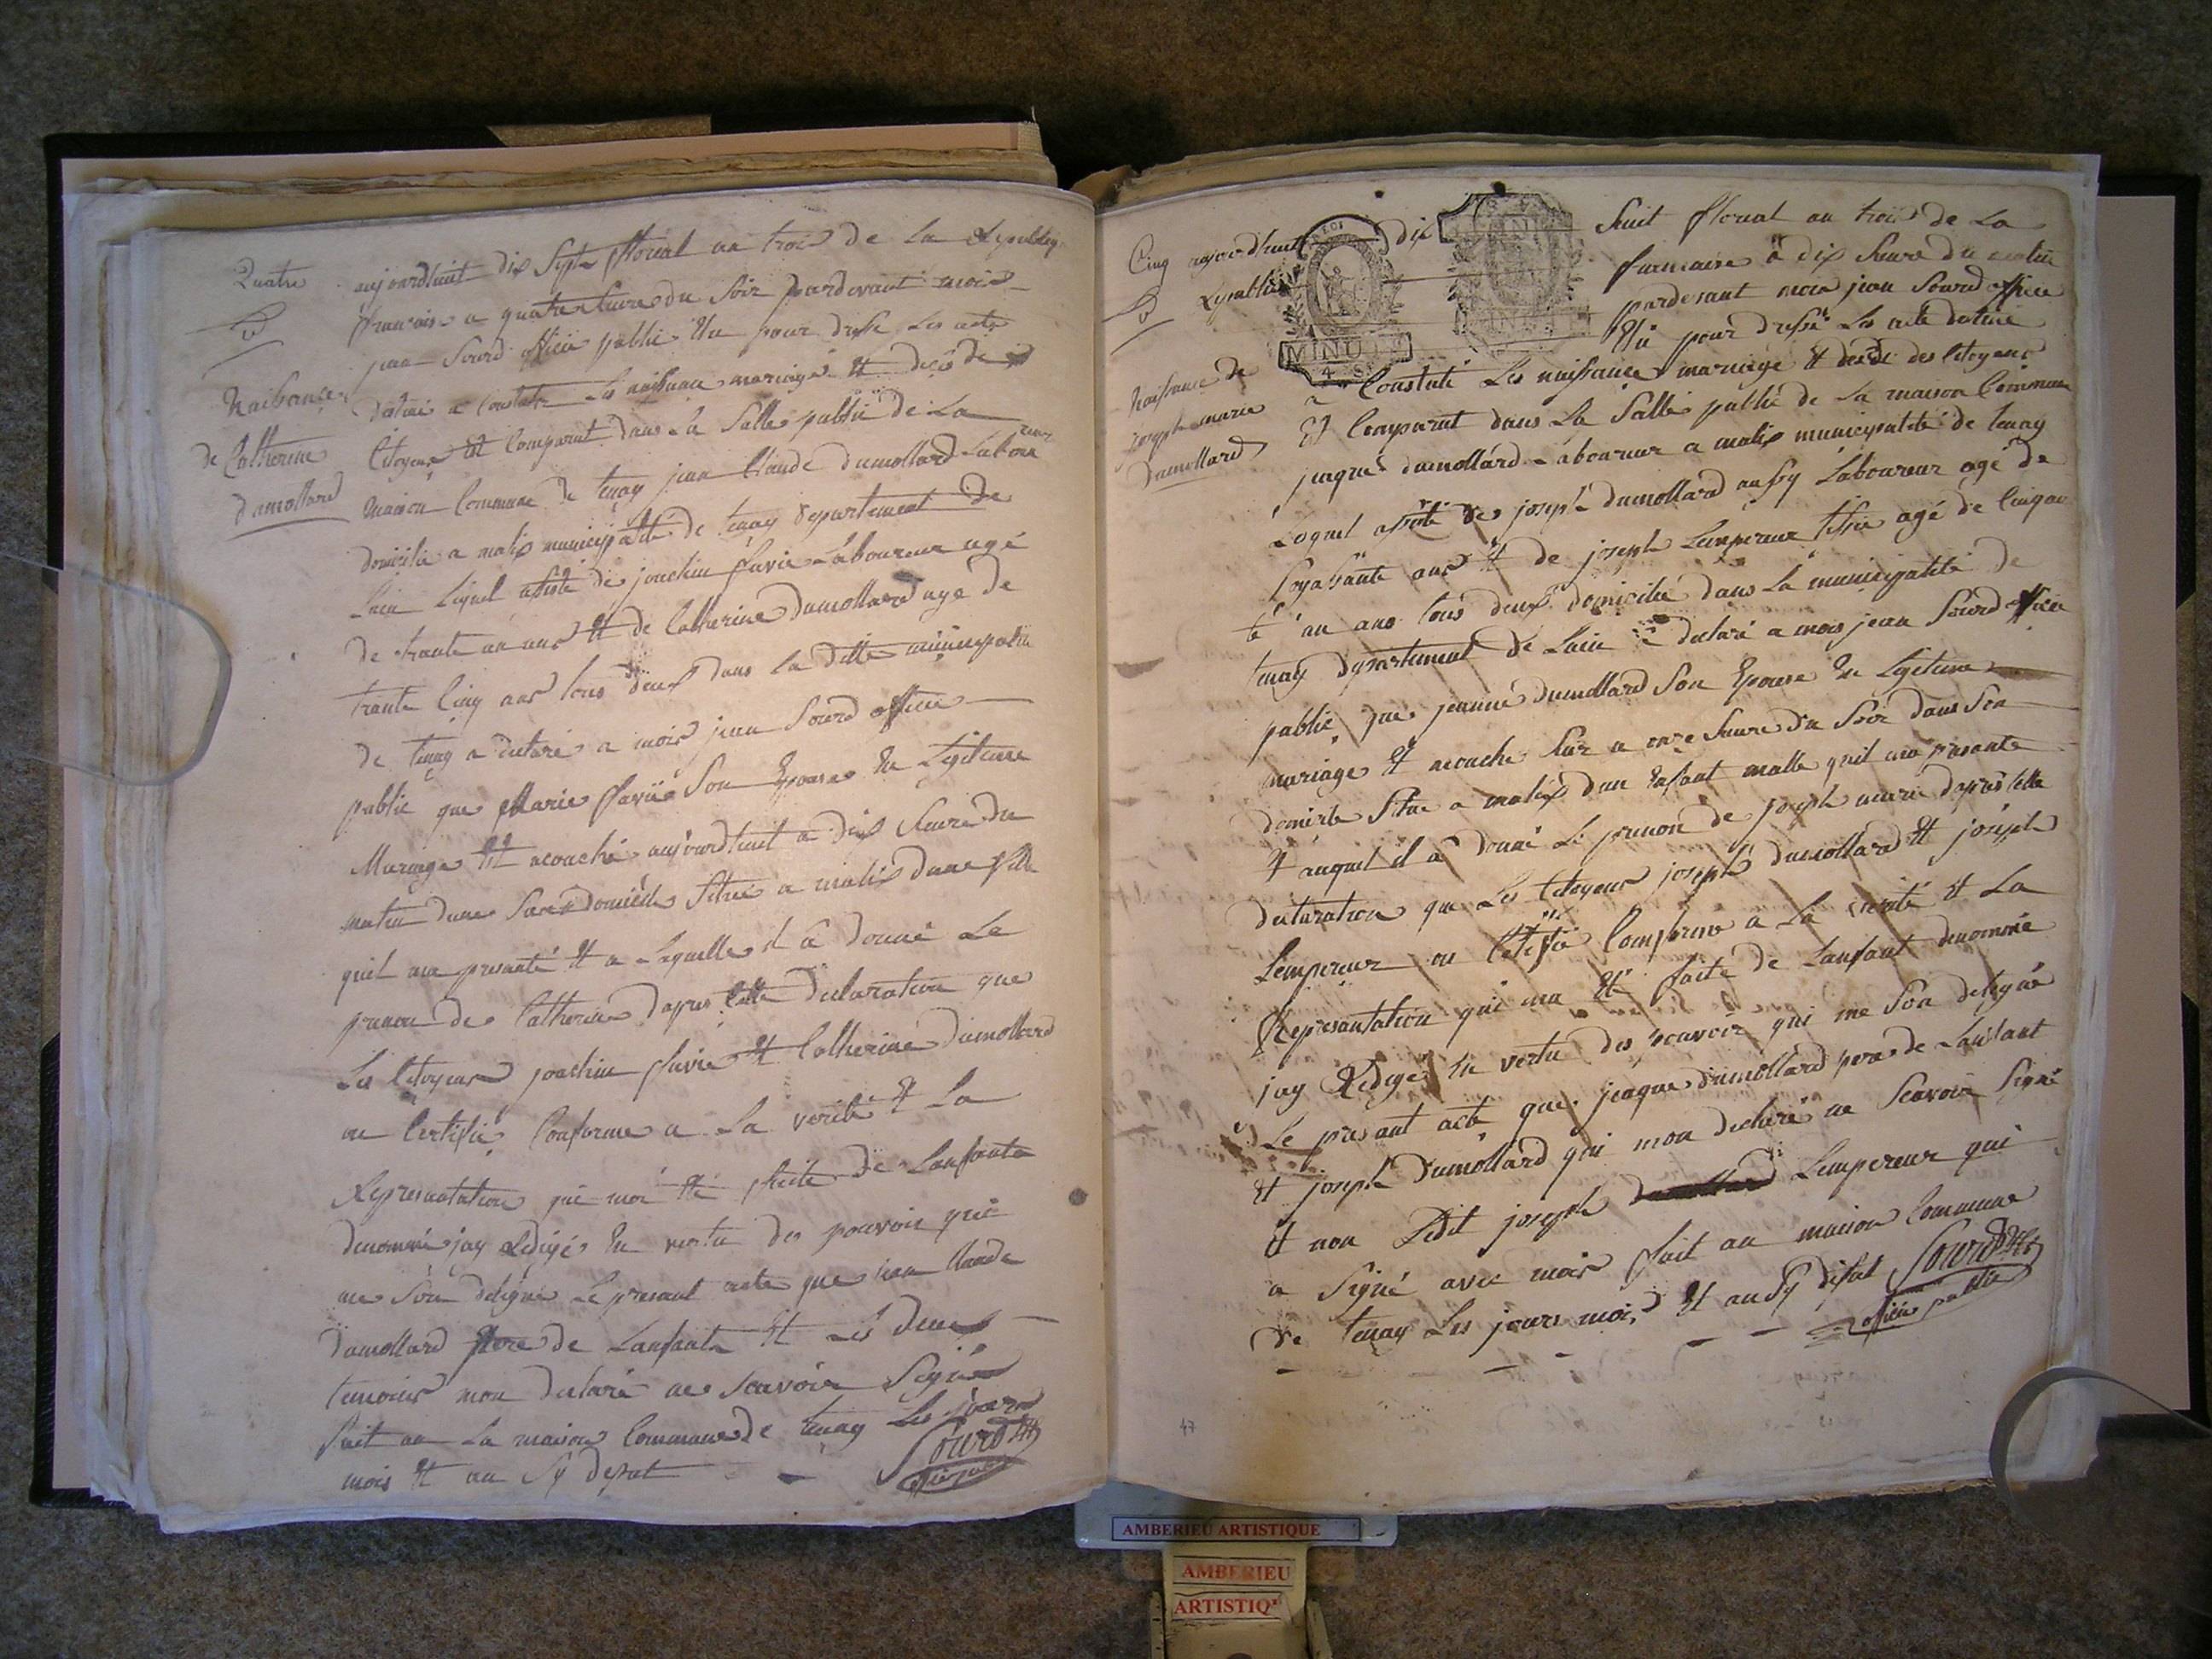 Quatre
N
Naissance
de Catherine
Dumollard
aujourdhuit dix Septe floreal an trois de la Republiq
francoise a quatre heure du Soir pardevant mois
jean Sourd officie public elu pour dresse les acte
destiné a constate les naissance mariage et decés des
Citoyens Et Comparut dans la Salle public de La
maison Commune de tenay jean Claude dumollard Laboureur
domicilie a malix municipalité de tenay departement de
Lain Lequel assisté de joachim favre Laboureur agé
de trante un ans Et de Catherine Dumollard age de
trante Cinq ans tous deux dans la ditte municipalité
de tenay a declaré a mois jean Sourd officie
public que Marie favre Son Epouse En Legitime
Mariage Est acouché aujourdhuit a dix heure du
matin dans Son domicile Situé a malix dune fille
quil ma presanté Et a Laquelle il a donné Le
prenon de Catherine dapres cette declaration que
Les Citoyens joachim favre Et Catherine dumollard
on Certifié Conforme a La verité Et La
Represantation qui moi Eté faite de Lanfante
denommé jay Redigé En vertu des pouvoir qui
me Son delegué Le presant acte que jean Claude
Dumollard pere de Lanfante Et Les deux
temoins mon declaré ne Scavoir Signé
fait an La maison Commune de tenay Les jours
mois Et an Sy desut
Sourd
officie public
Cinq
N
Naissance de
joseph marie
Dumollard
aujourdhuit dix huit floreal an trois de La
Republic francoise a dix heure du matin
MINUTE
4 S
pardevant mois jean Sourd officie
Elu pour dressé Les acte destiné
a Constaté Les naissance mariage Et decés des Citoyens
Et Comparut dans La Salle public de La maison Commune
jaque dumollard Laboureur a malix municipalité de tenay
Loquel assisté de joseph dumollard aussy Laboureur agé de
Soyassante ans Et de joseph Lempereur tissie agé de Cinquan
te un ans tous deux domicilié dans La municipalité de
tenay departement de Lain a declaré a mois jean Sourd officie
public que jeanne dumollard Son Epouse En Legitime
mariage Et acouché hier a onze heure du Soir dans Son
domicile Situe a malix dun Enfant malle quil ma presante
Et auquel il a donné Le prenon de joseph marie dapres Cette
declaration que Les Citoyens joseph dumollard Et joseph
Lempereur on Certifié Conforme a La verité Et La
Represantation qui ma Eté faite de Lanfant denommé
jay Redigé En vertu des pouvoir qui me Son delegué
Le presant acte que jaque dumollard pere de Lanfant
Et joseph dumollard qui mon declaré ne Scavoir Signé
Et non Ledit joseph Lempereur qui
a Signé avec mois fait an maison Commune
de tenay Les jours mois Et an Sy desut Sourd
officie public
47
AMBERIEU ARTISTIQUE
AMBERIEU
ARTISTIQ